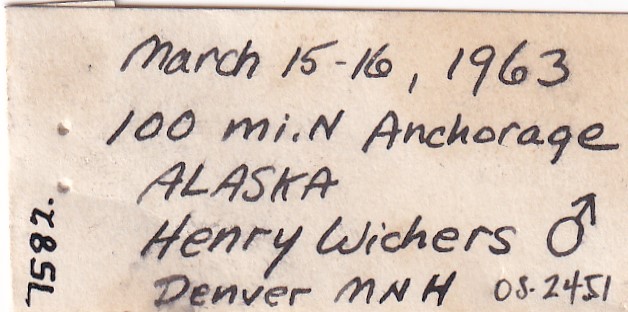 March 15-16, 1963
100 mi. N Anchorage
ALASKA
Henry Wichers ♂
Denver MNH OS-2451
7582.